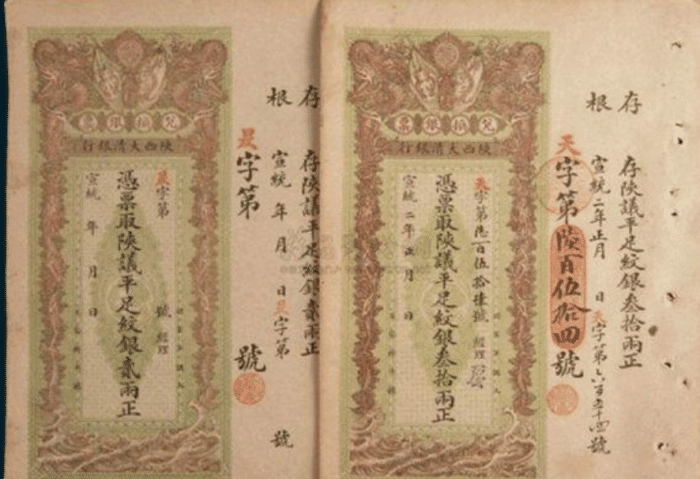 存根
存陝議平足紋銀叁拾兩正
宣統二年正月 日天字第六百五十四號
天字第陸百伍拾四號
兌換銀票
陝西大清銀行
天字第陸百伍拾肆號 經理
憑票取陝議平足紋銀叁拾兩正
宣統二年正月 日
存根
存陝議平足紋銀貳兩正
宣統 年 月 日辰字第 號
辰字第 號
兌換銀票
陝西大清銀行
辰字第 號 經理
憑票取陝議平足紋銀貳兩正
宣統 年 月 日